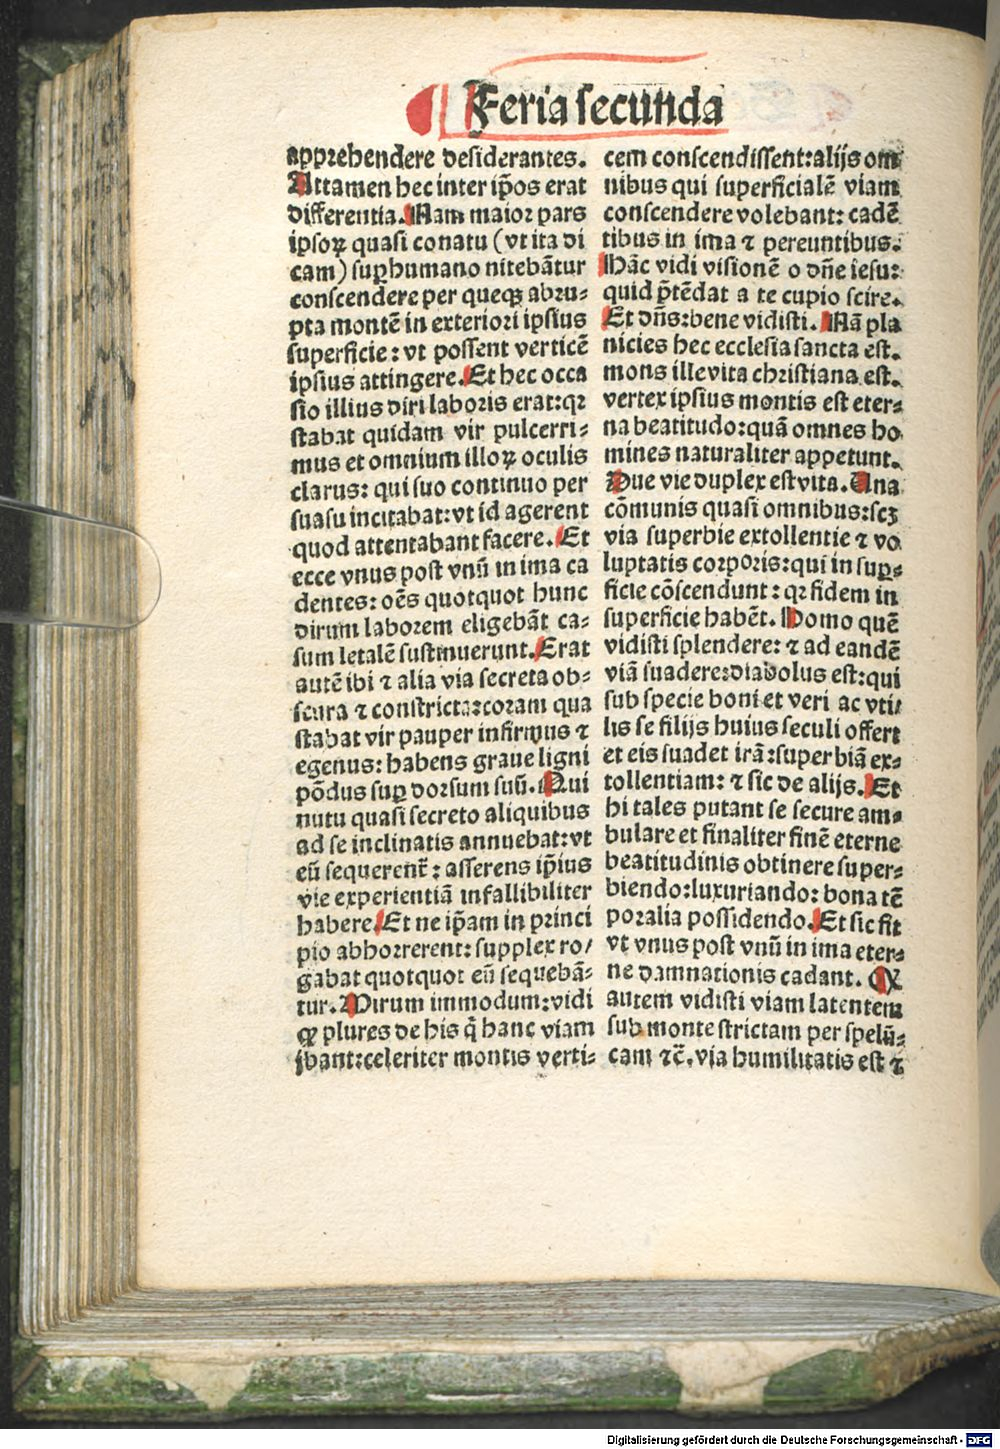 Feria secunda
apprehendere desiderantes.
Attamen hec inter ip̃os erat
differentia. Nam maior pars
ipsoꝝ quasi conatu (vt ita di
cam) suꝑhumano nitebãtur
conscendere per queqꝫ abru-
pta montẽ in exteriori ipsius
superficie: vt possent verticẽ
ipsius attingere. Et hec occa
sio illius diri laboris erat: qꝛ
stabat quidam vir pulcerri-
mus et omnium illoꝝ oculis
clarus: qui suo continuo per
suasu incitabat: vt id agerent
quod attentabant facere. Et
ecce vnus post vnũ in ima ca
dentes: oẽs quotquot hunc
dirum laborem eligebãt ca-
sum letalẽ sustinuerunt. Erat
autẽ ibi ⁊ alia via secreta ob-
scura ⁊ constricta: coram qua
stabat vir pauper infirmus ⁊
egenus: habens graue ligni
põdus suꝑ dorsum suũ. Qui
nutu quasi secreto aliquibus
ad se inclinatis annuebat: vt
eũ sequerent̃: asserens ip̃ius
vie experientiã infallibiliter
habere. Et ne ip̃am in princi
pio abhorrerent: supplex ro/
gabat quotquot eũ sequebã-
tur. Mirum immodum: vidi
qꝫ plures de his q̃ hanc viam
ibant: celeriter montis verti-
cem conscendissent: alijs om
nibus qui superficialẽ viam
conscendere volebant: cadẽ
tibus in ima ⁊ pereuntibus.
Hãc vidi visionẽ o dñe iesu:
quid p̃tẽdat a te cupio scire.
Et dñs: bene vidisti. Nã pla
nicies hec ecclesia sancta est.
mons ille vita christiana est.
vertex ipsius montis est eter-
na beatitudo: quã omnes ho
mines naturaliter appetunt.
Due vie duplex est vita. Una
cõmunis quasi omnibus: scꝫ
via superbie extollentie ⁊ vo
luptatis corporis: qui in suꝑ-
ficie cõscendunt: qꝛ fidem in
superficie habẽt. Homo quẽ
vidisti splendere: ⁊ ad eandẽ
viã suadere: diabolus est: qui
sub specie boni et veri ac vti/
lis se filijs huius seculi offert
et eis suadet irã: superbiã ex-
tollentiam: ⁊ sic de alijs. Et
hi tales putant se secure am-
bulare et finaliter finẽ eterne
beatitudinis obtinere super-
biendo: luxuriando: bona tẽ
poralia possidendo. Et sic fit
vt vnus post vnũ in ima eter-
ne damnationis cadant. Qꝫ
autem vidisti viam latentem
sub monte strictam per spelũ-
cam ⁊c̃. via humilitatis est ⁊
Digitalisierung gefördert durch die Deutsche Forschungsgemeinschaft - DFG